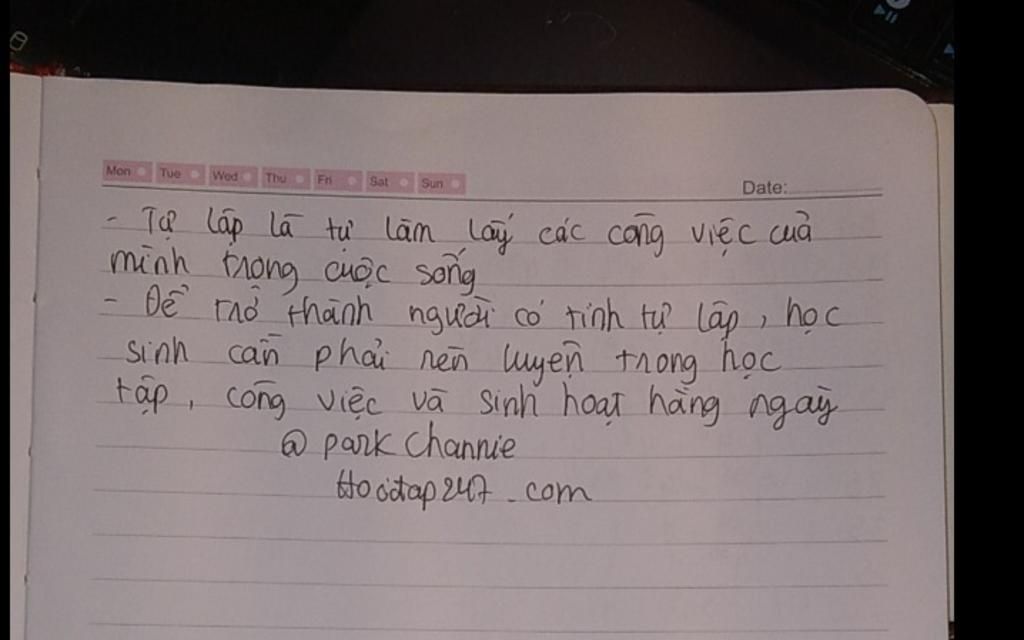 Mon Tue Wed Thu Fri Sat Sun
Date:
- Tự lập là tự làm lấy các công việc của
mình trong cuộc sống
- Để trở thành người có tính tự lập, học
sinh cần phải rèn luyện trong học
tập, công việc và sinh hoạt hằng ngày
@ park Channie
Hoctap247.com